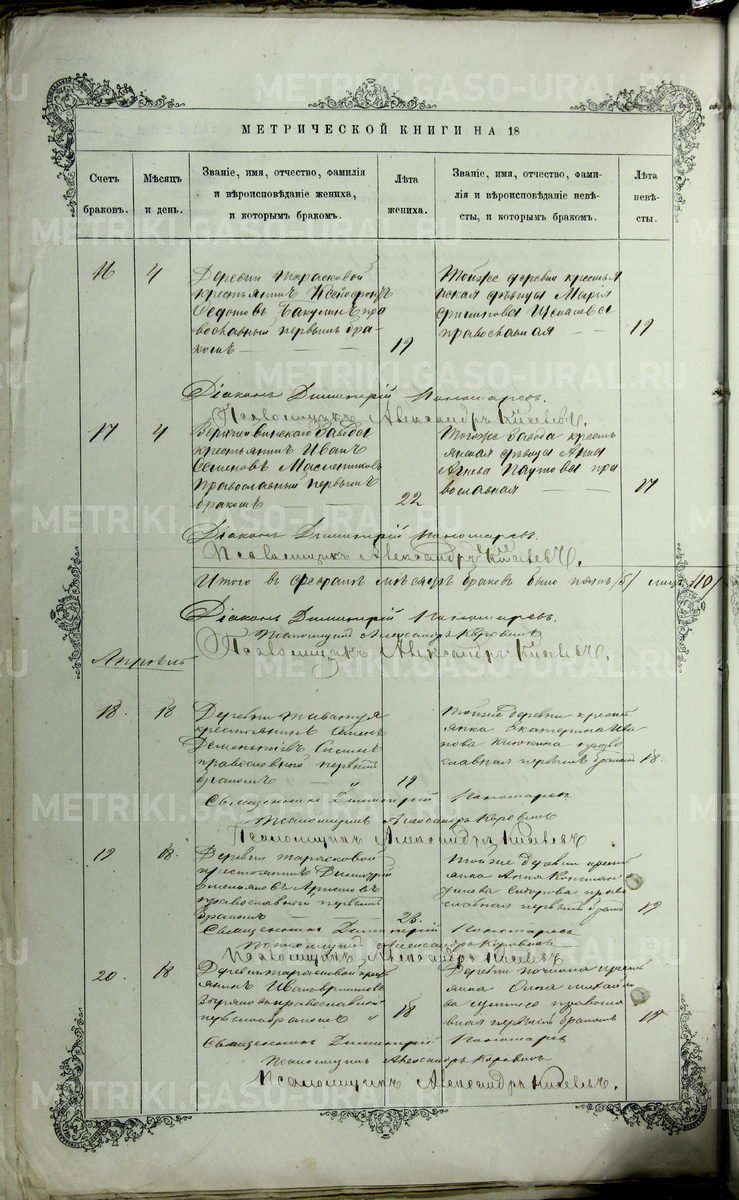 МЕТРИЧЕСКОЙ КНИГИ НА 18
Счетъ браковъ.
Мѣсяцъ и день.
Званіе, имя, отчество, фамилія
и вѣроисповѣданіе жениха,
и которымъ бракомъ.
Лѣта
жениха.
Званіе, имя, отчество, фами-
лія и вѣроисповѣданіе невѣ-
сты, и которымъ бракомъ.
Лѣта
невѣ-
сты.
16 4
Деревни Тарасковой
крестьянинъ
Федотовъ Бакунинъ пра
вославный первымъ бра-
комъ
19
Тойже деревни крестья
нская дѣвица Марія
православная
19
Діаконъ Димитрій Пономаревъ.
Псаломщикъ Александръ Киселевъ.
17 4
Верхнейвинскаго Завода
крестьянинъ Иванъ
Семеновъ Масленниковъ
Православный первымъ
бракомъ
22
Тогоже Завода кресть
янская дѣвица Анна
Паутова пра
вославная
17
Діаконъ Димитрій Пономаревъ.
Псаломщикъ Александръ Киселевъ.
Итого въ февралѣ мѣсяцѣ браковъ было пять /5/ лицъ /10/
Діаконъ Димитрій Пономаревъ.
Псаломщикъ Александръ Коровинъ
Псаломщикъ Александръ Киселевъ.
Апрѣль
18. 18
Деревни Таватуя
крестьянинъ Семенъ
Дементіевъ
православный первымъ
бракомъ
19
Тойже деревни кресть
янка Екатерина Ива
нова право
славная первымъ бракомъ
18.
Священникъ Димитрій Пономаревъ
Псаломщикъ Александръ Коровинъ
Псаломщикъ Александръ Киселевъ
19 18.
Деревни Тарасковой
крестьянинъ Димитрій
Емельяновъ
православный первымъ
бракомъ
23.
Тойже деревни кресть
янка Анна Констан
тинова право
славная первымъ бракомъ
19
Священникъ Димитрій Пономаревъ
Псаломщикъ Александръ Коровинъ
Псаломщикъ Александръ Киселевъ
20. 18
Деревни Тарасковой крест
янинъ
православный
первымъ бракомъ
18
Деревни кресть
янка Михайло
ва правосла
вная первымъ бракомъ
19
Священникъ Димитрій Пономаревъ
Псаломщикъ Александръ Коровинъ
Псаломщикъ Александръ Киселевъ.
METRIKI.GASO-URAL.RU